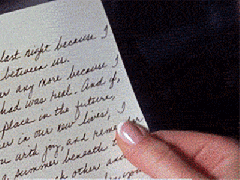 last night because I
between us.
any more because I
had was real. And if
place in the future,
in our new lives, I
with joy and
a summer beneath
each other and